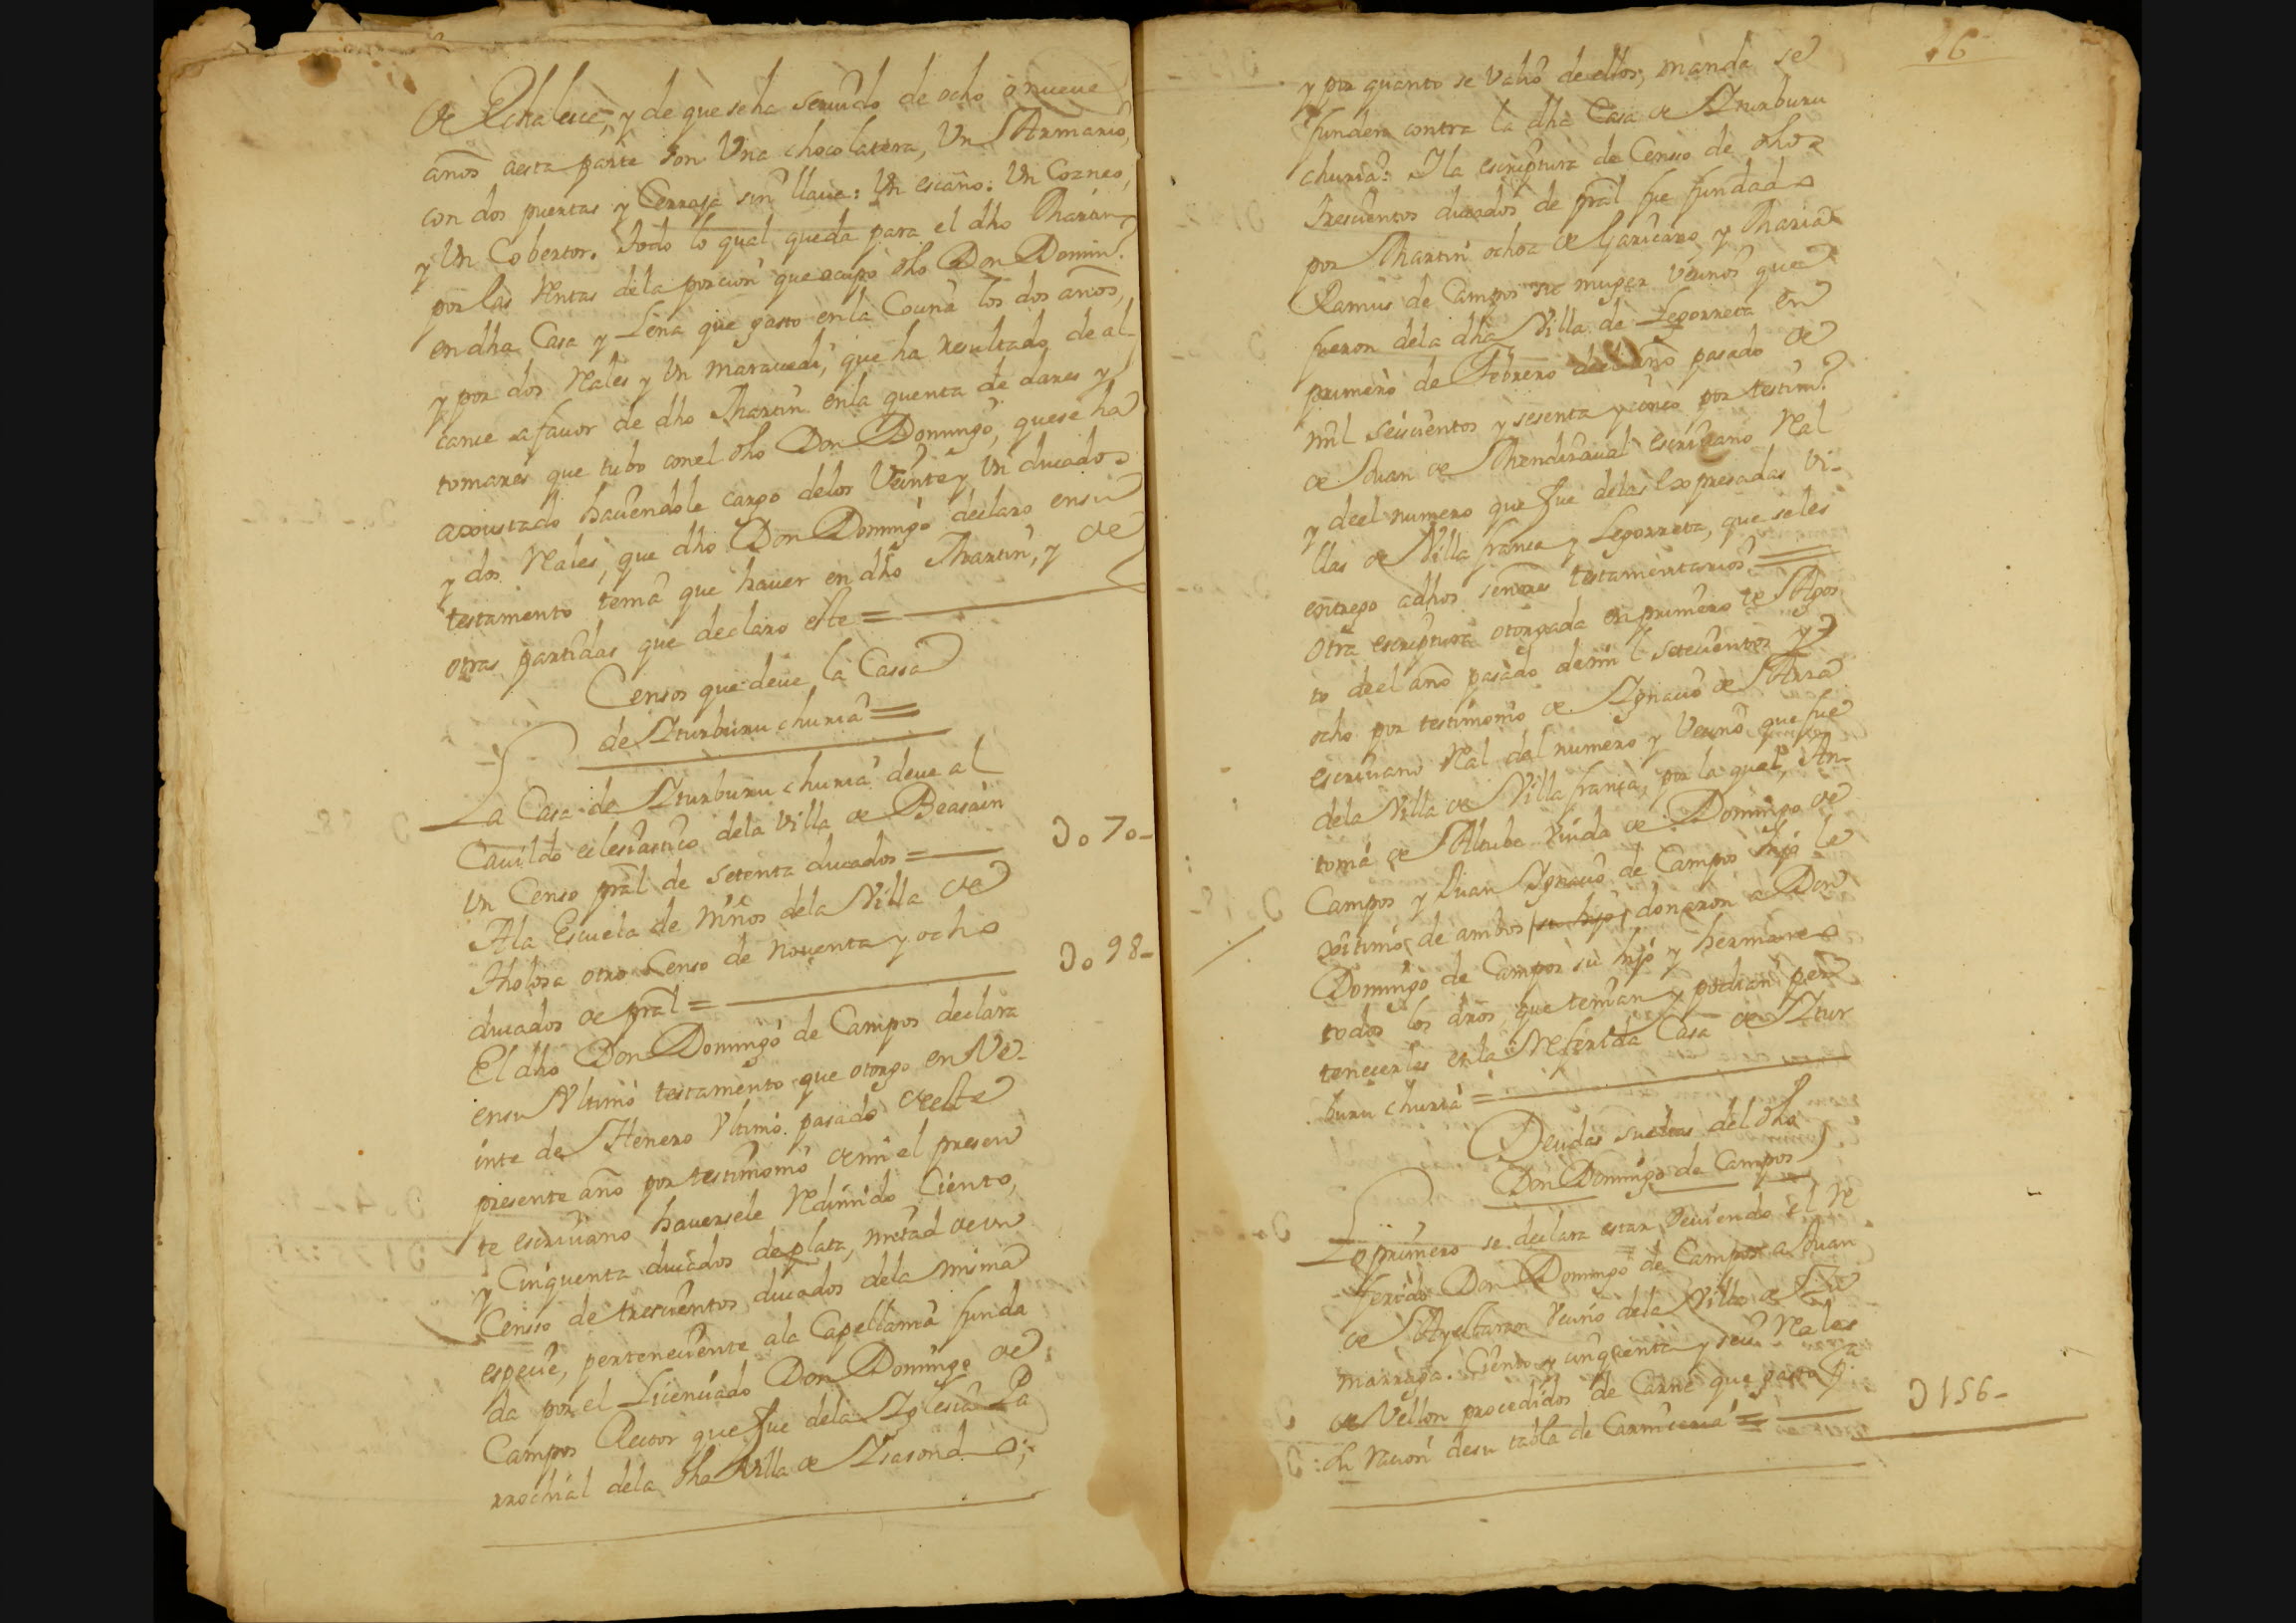 de Echaluce, y de que se ha seruido de ocho o nueue
años aesta parte son Vna chocolatera, Vn Armario,
con dos puertas y Cerraja sin llaue: Vn escaño: Vn Coznео,
y Vn Cobertor. todo lo qual queda para el dho Martin
por las Rentas dela porcion que ocupo dho Don Doming.º
en dha Casa y Leña que gasto enla Cocina los dos años,
y por dos Rales y Vn marauedi, que ha resultado de al
cance a fauor de dho Martin enla quenta de dares y
tomares que tubo conel dho Don Domingo, quese ha
axoustado hauiendole cargo delos Veinte y Vn ducados
y dos Rales, que dho Don Domingo declaro ensu
testamento tenia que hauer en dho Martin, y de
otras partidas que declaro este =
Censos que deue la Cassa
de Yturburu churia =
La Casa de Yturburu churia deue al
Cauildo eclesiastico dela Villa de Beasain
Vn Censo pral de setenta ducados = Do70-
Ala Escuela de Niños dela Villa de
Tholosa otro Censo de nouenta y ocho
ducados de pral = Do98-
El dho Don Domingo de Campos declara
ensu Vltimo testamento que otorgo en Ve-
inte de Henero Vltimo pasado deeste
presente año por testimonio demi el presen
te escriuano hauersele Redimido Ciento,
y Cinquenta ducados de plata, mitad de vn
Censo de trescientos ducados dela misma
especie, perteneciente ala Capellania funda
da por el Licenciado Don Domingo de
Campos Rector que fue dela Yglesia Pa
rrochial dela dha Villa de Ysasondo;
26
y por quanto se Valio de ellos, manda se
funden contra la dha Casa de Yturburu
churia: Y la escriptura de Censo de dhos
trescientos ducados de pral fue fundado
por Martin ochoa de Garicano y Maria
Ramus de Campos su muger Vecinos que
fueron dela dha Villa de Legorreta en
primero de Febrero deel año pasado de
mil seiscientos y sesenta y cinco por testim.º
de Juan de Mendizaual escriuano Ral
y deel numero que fue delas Expresadas Vi-
llas de Villa franca y Legorreta, que seles
entrego adhos señores testamentarios =
Otra escriptura otorgada en primero de Agos
to deel año pasado demil setecientos y
ocho por testimonio de Ygnacio de Arra
escriuano Ral del numero y Vecino que fue
dela Villa de Villa franca, por la qual, An-
tonia de Altube Viuda de Domingo de
Campos y Juan Ygnacio de Campos hijo le
xitimo de ambos su hijo donaron a Don
Domingo de Campos su hijo y hermano
todos los dros que tenian y podian per
tenecerles enla Referida Casa de Ytur
buru churia =
Deudas sueltas del dho
Don Domingo de Campos
Lo primero se declara estar deuiendo el Re
ferido Don Domingo de Campos a Juan
de Ayestaran Vecino dela Villa de Zu
marraga. Ciento y cinquenta y seis Rales
de Vellon procedidos de Carne que gasto p.ª
su racion desu tabla de Carniceria = D156-